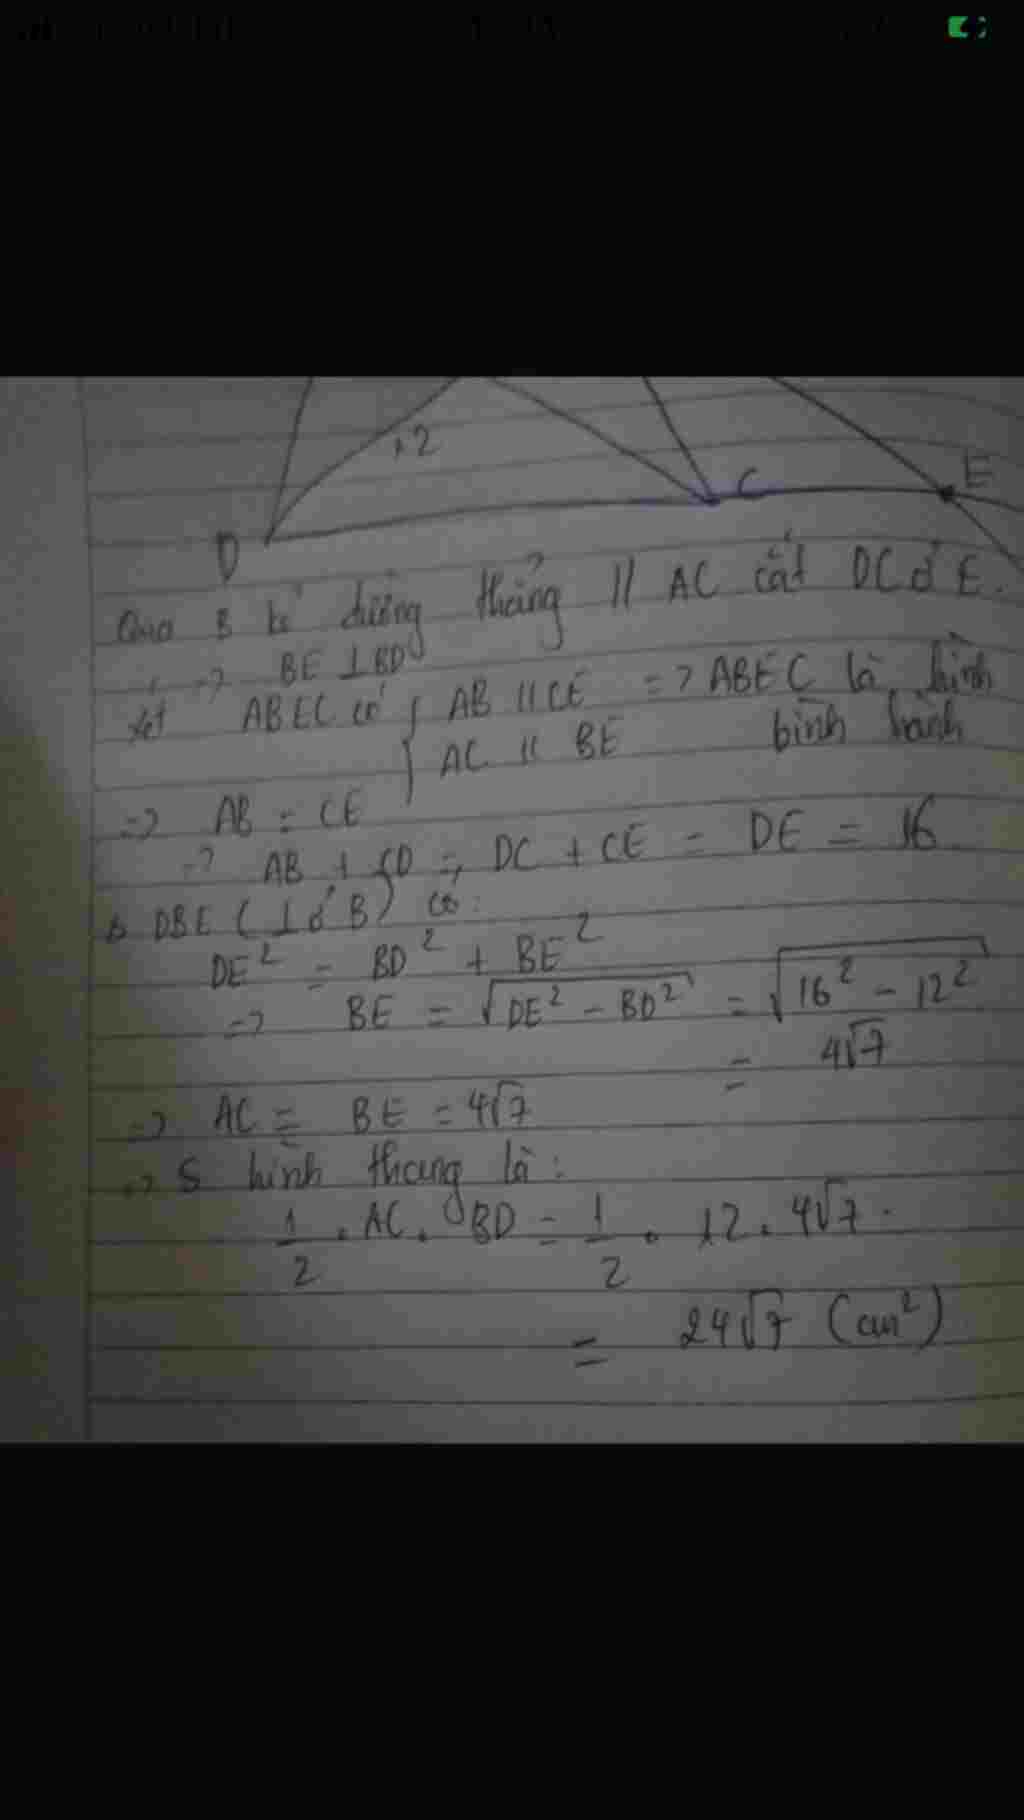 12
C
E
D
Qua B kẻ đường thẳng // AC cắt DC ở E.
=> BE ⊥ BD
Xét ABEC có { AB // CE => ABEC là hình
AC // BE bình hành
=> AB = CE
=> AB + CD = DC + CE = DE = 16
Δ DBE (⊥ ở B) có:
DE² = BD² + BE²
=> BE = √(DE² - BD²) = √(16² - 12²)
= 4√7
=> AC = BE = 4√7
=> S hình thang là:
1/2 . AC . BD = 1/2 . 12 . 4√7.
= 24√7 (cm²)